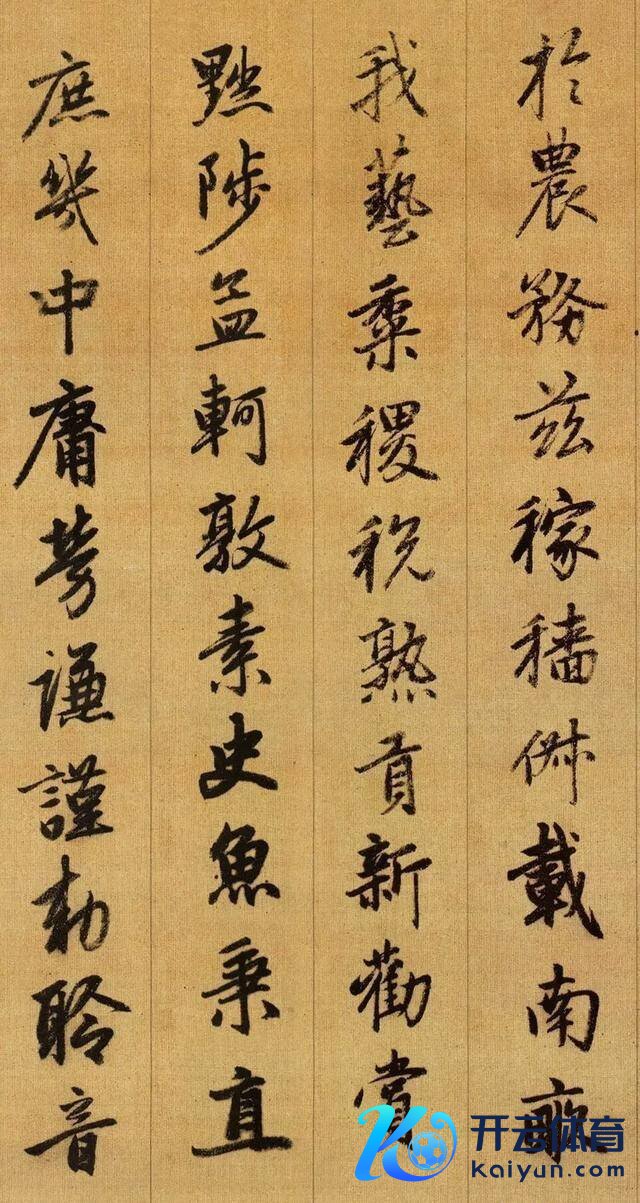 於農務茲稼穡俶載南畝
我藝黍稷稅熟貢新勸賞
黜陟孟軻敦素史魚秉直
庶幾中庸勞謙謹勅聆音
开云体育
kaiyun.com